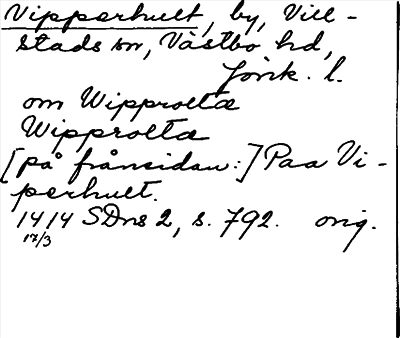 Vipperhult, by, Vill-
stads sn, Västbo hd,
Jönk. l.
om Wipproltæ
Wipproltæ
[på frånsidan:] Paa Vi-
perhult.
1414 SDns 2, s. 792. orig.
17/3